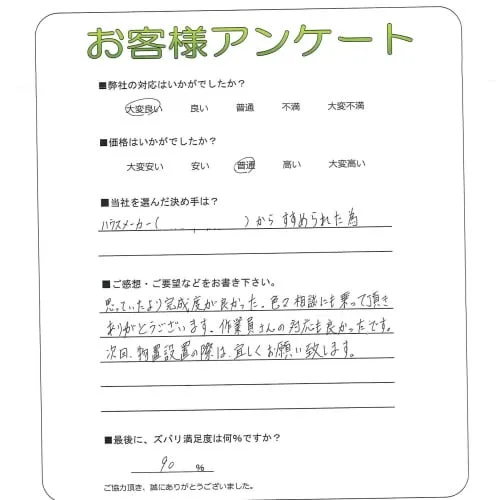 お客様アンケート
■弊社の対応はいかがでしたか?
大変良い 良い 普通 不満 大変不満
■価格はいかがでしたか?
大変安い 安い 普通 高い 大変高い
■当社を選んだ決め手は?
ハウスメーカー( )から すすめられた為
■ご感想・ご要望などをお書き下さい。
思っていたより完成度が良かった。色々相談にも乗って頂き
ありがとうございます。作業員さんの対応も良かったです。
次回、物置設置の際は、宜しくお願い致します。
■最後に、ズバリ満足度は何%ですか?
90 %
ご協力頂き、誠にありがとうございました。